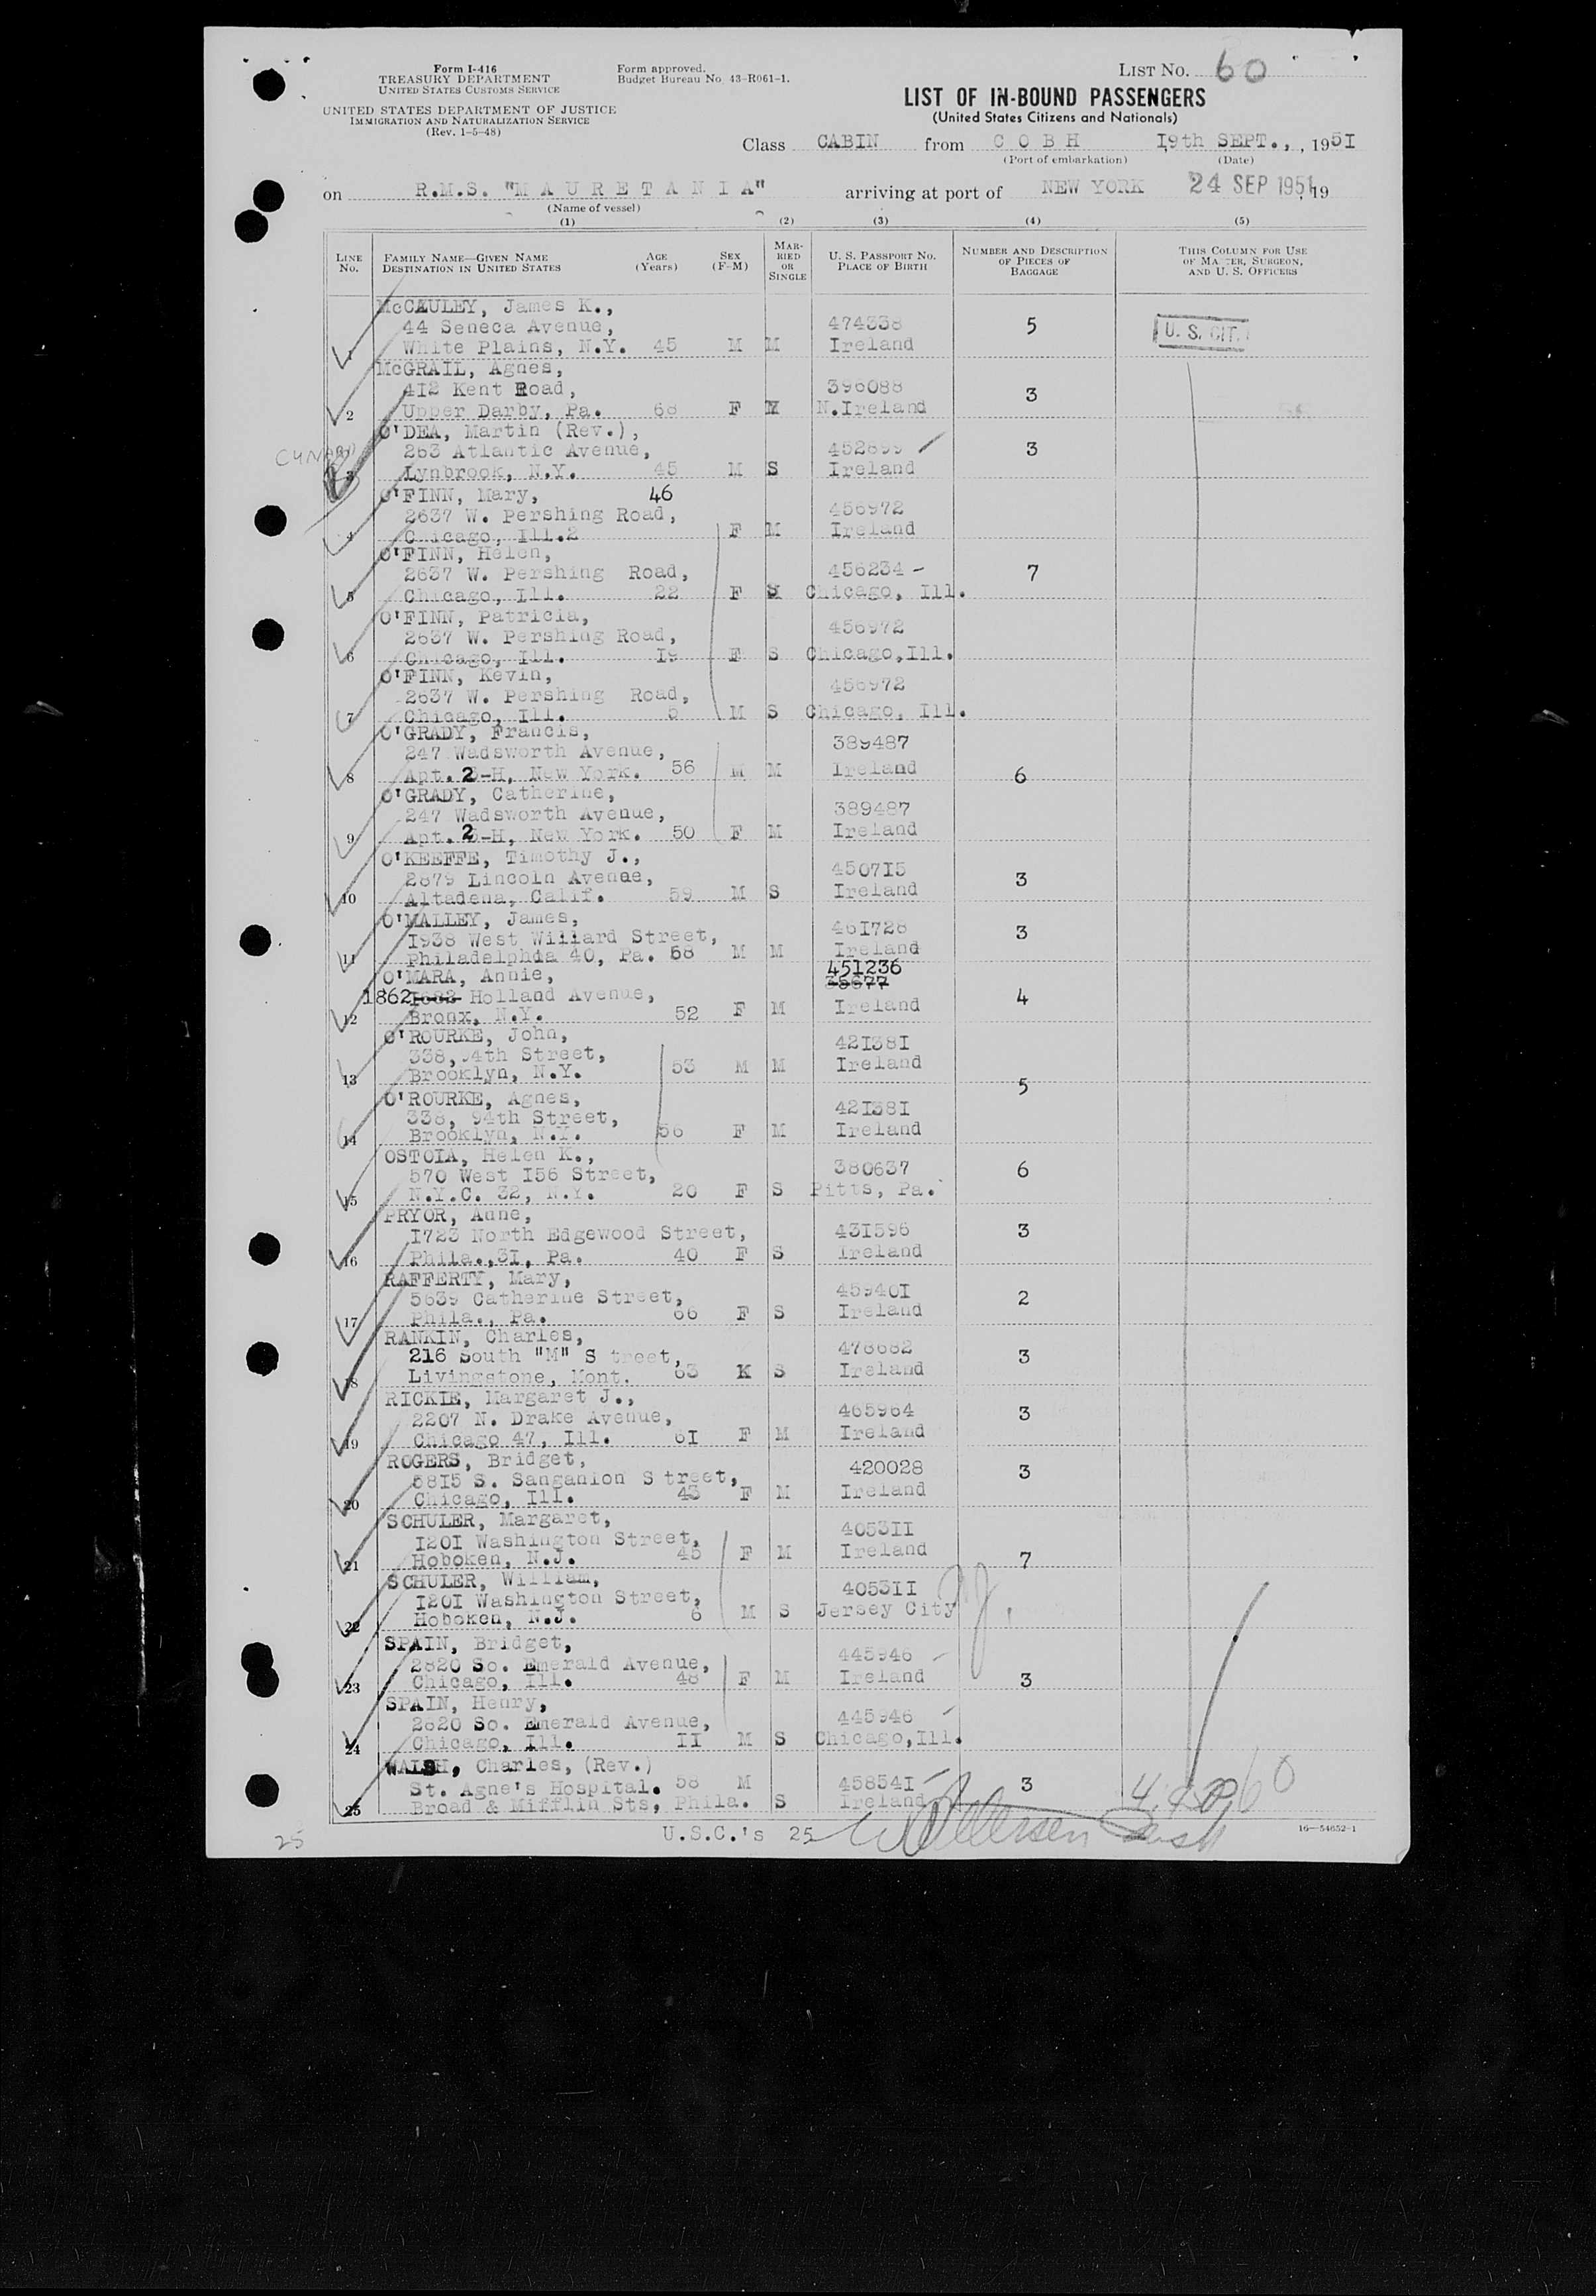 Form I-416
TREASURY DEPARTMENT
UNITED STATES CUSTOMS SERVICE
UNITED STATES DEPARTMENT OF JUSTICE
IMMIGRATION AND NATURALIZATION SERVICE
(Rev. 1-5-48)
Form approved.
Budget Bureau No. 43-R061-1.
LIST NO. 60
LIST OF IN-BOUND PASSENGERS
(United States Citizens and Nationals)
Class CABIN from C O B H I9th SEPT., , 1951
(Port of embarkation) (Date)
on R.M.S. "M A U R E T A N I A" arriving at port of NEW YORK 24 SEP 1951, 19
(Name of vessel)
(1) (2) (3) (4) (5)
LINE NO.
FAMILY NAME—GIVEN NAME
DESTINATION IN UNITED STATES
AGE (Years)
SEX (F-M)
MARRIED OR SINGLE
U. S. PASSPORT NO.
PLACE OF BIRTH
NUMBER AND DESCRIPTION OF PIECES OF BAGGAGE
THIS COLUMN FOR USE OF MASTER, SURGEON, AND U. S. OFFICERS
McCAULEY, James K.,
44 Seneca Avenue, 474338 5 U. S. CIT.
1 White Plains, N.Y. 45 M M Ireland
McGRAIL, Agnes,
412 Kent Road, 396088 3
2 Upper Darby, Pa. 68 F M N.Ireland
O'DEA, Martin (Rev.),
CUNARD 263 Atlantic Avenue, 452699 3
3 Lynbrook, N.Y. 45 M S Ireland
O'FINN, Mary, 46
2637 W. Pershing Road, 456972
4 Chicago, Ill.2 F M Ireland
O'FINN, Helen,
2637 W. Pershing Road, 456234 - 7
5 Chicago, Ill. 22 F S Chicago, Ill.
O'FINN, Patricia,
2637 W. Pershing Road, 456972
6 Chicago, Ill. I9 F S Chicago,Ill.
O'FINN, Kevin,
2637 W. Pershing Road, 456972
7 Chicago, Ill. 5 M S Chicago, Ill.
O'GRADY, Francis,
247 Wadsworth Avenue, 389487
8 Apt. 2-H, New York. 56 M M Ireland 6
O'GRADY, Catherine,
247 Wadsworth Avenue, 389487
9 Apt. 2-H, New York. 50 F M Ireland
O'KEEFFE, Timothy J.,
2879 Lincoln Avenue, 4507I5 3
10 Altadena, Calif. 59 M S Ireland
O'MALLEY, James,
I938 West Willard Street, 46I728 3
11 Philadelphia 40, Pa. 58 M M Ireland
O'MARA, Annie, 451236
1862 Holland Avenue, 4
12 Bronx, N.Y. 52 F M Ireland
O'ROURKE, John,
338, 94th Street, 42I38I
13 Brooklyn, N.Y. 53 M M Ireland 5
O'ROURKE, Agnes,
338, 94th Street, 42I38I
14 Brooklyn, N.Y. 56 F M Ireland
OSTOIA, Helen K.,
570 West I56 Street, 380637 6
15 N.Y.C. 32, N.Y. 20 F S Pitts, Pa.
PRYOR, Anne,
I723 North Edgewood Street, 43I596 3
16 Phila.,3I, Pa. 40 F S Ireland
RAFFERTY, Mary,
5639 Catherine Street, 45940I 2
17 Phila., Pa. 66 F S Ireland
RANKIN, Charles,
216 South "M" S treet, 478682 3
18 Livingstone, Mont. 63 M S Ireland
RICKIE, Margaret J.,
2207 N. Drake Avenue, 465964 3
19 Chicago 47, Ill. 6I F M Ireland
ROGERS, Bridget,
58I5 S. Sanganion S treet, 420028 3
20 Chicago, Ill. 43 F M Ireland
SCHULER, Margaret,
I20I Washington Street, 4053II
21 Hoboken, N.J. 45 F M Ireland 7
SCHULER, William,
I20I Washington Street, 4053II
22 Hoboken, N.J. 6 M S Jersey City
SPAIN, Bridget,
2820 So. Emerald Avenue, 445946
23 Chicago, Ill. 48 F M Ireland 3
SPAIN, Henry,
2820 So. Emerald Avenue, 445946
24 Chicago, Ill. II M S Chicago,Ill.
WALSH, Charles, (Rev.)
St. Agne's Hospital. 58 M 45854I 3
25 Broad & Mifflin Sts, Phila. S Ireland
25 U.S.C.'s 25 16—54652-1